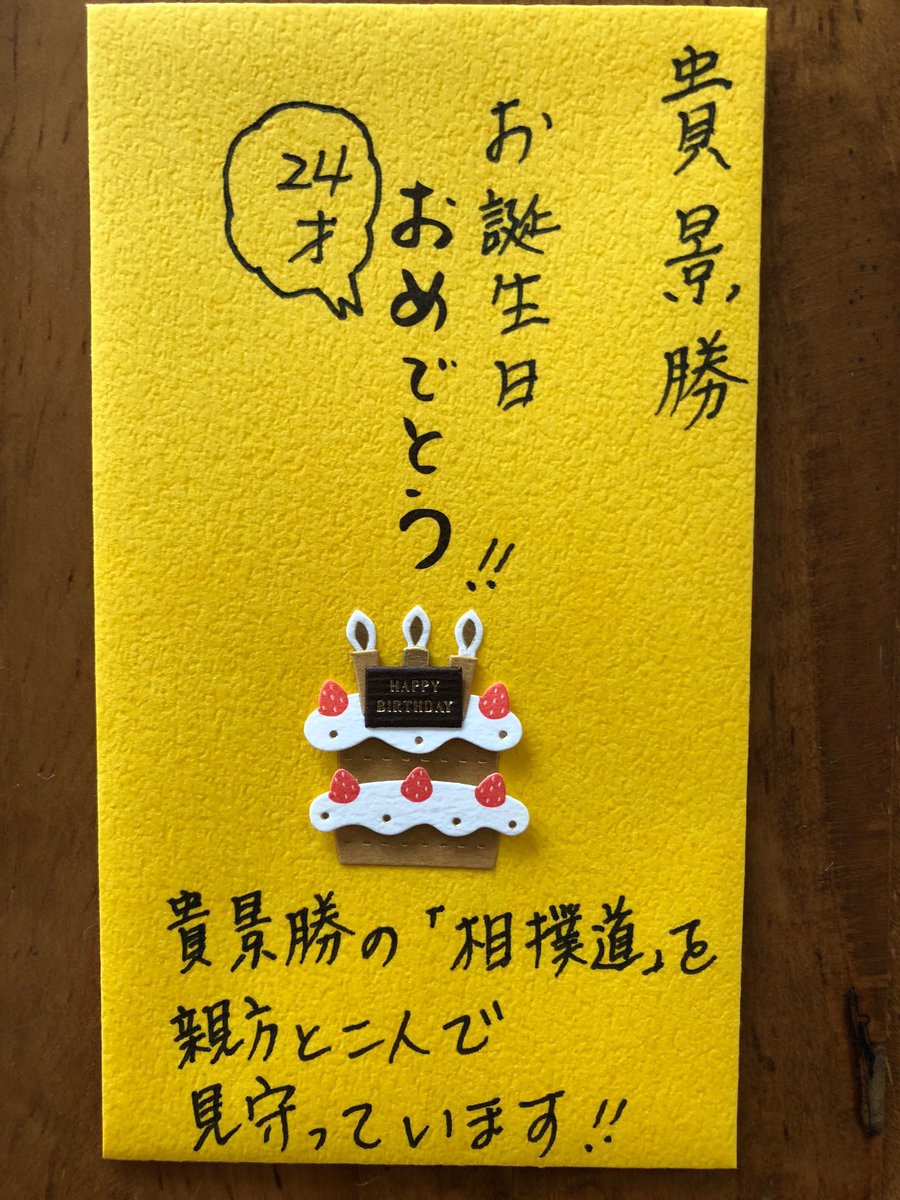 貴景勝
お誕生日
おめでとう!!
24
才
HAPPY
BIRTHDAY
貴景勝の「相撲道」を
親方と二人で
見守っています!!